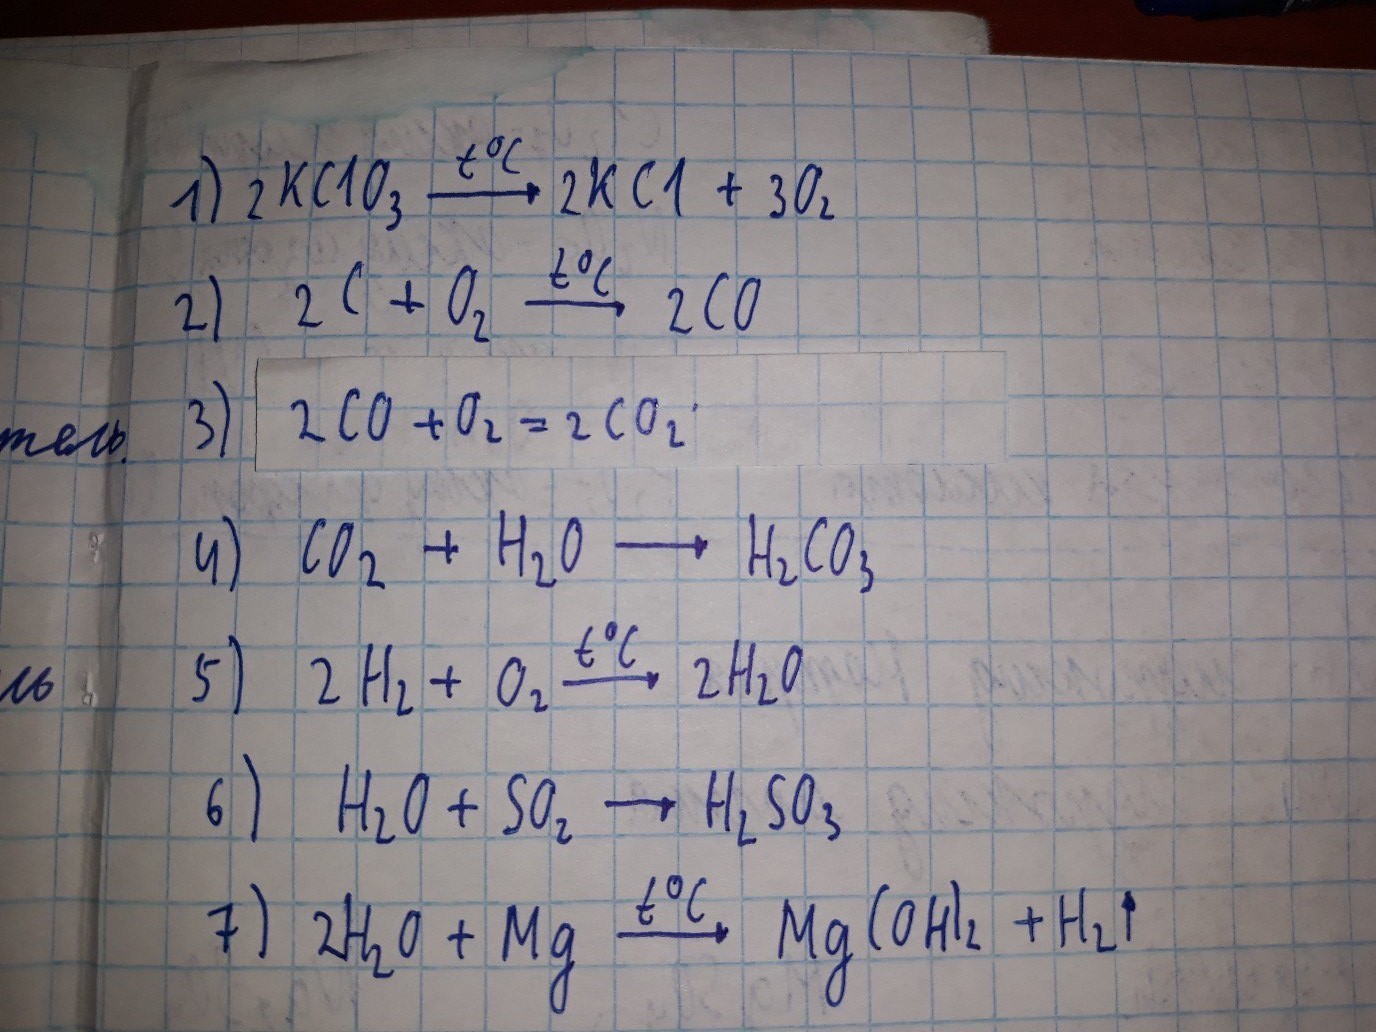 1) 2KClO₃ —t°C→ 2KCl + 3O₂
2) 2C + O₂ —t°C→ 2CO
тель. 3) 2CO + O₂ = 2CO₂
4) CO₂ + H₂O → H₂CO₃
ль 5) 2H₂ + O₂ —t°C→ 2H₂O
6) H₂O + SO₂ → H₂SO₃
7) 2H₂O + Mg —t°C→ Mg(OH)₂ + H₂↑